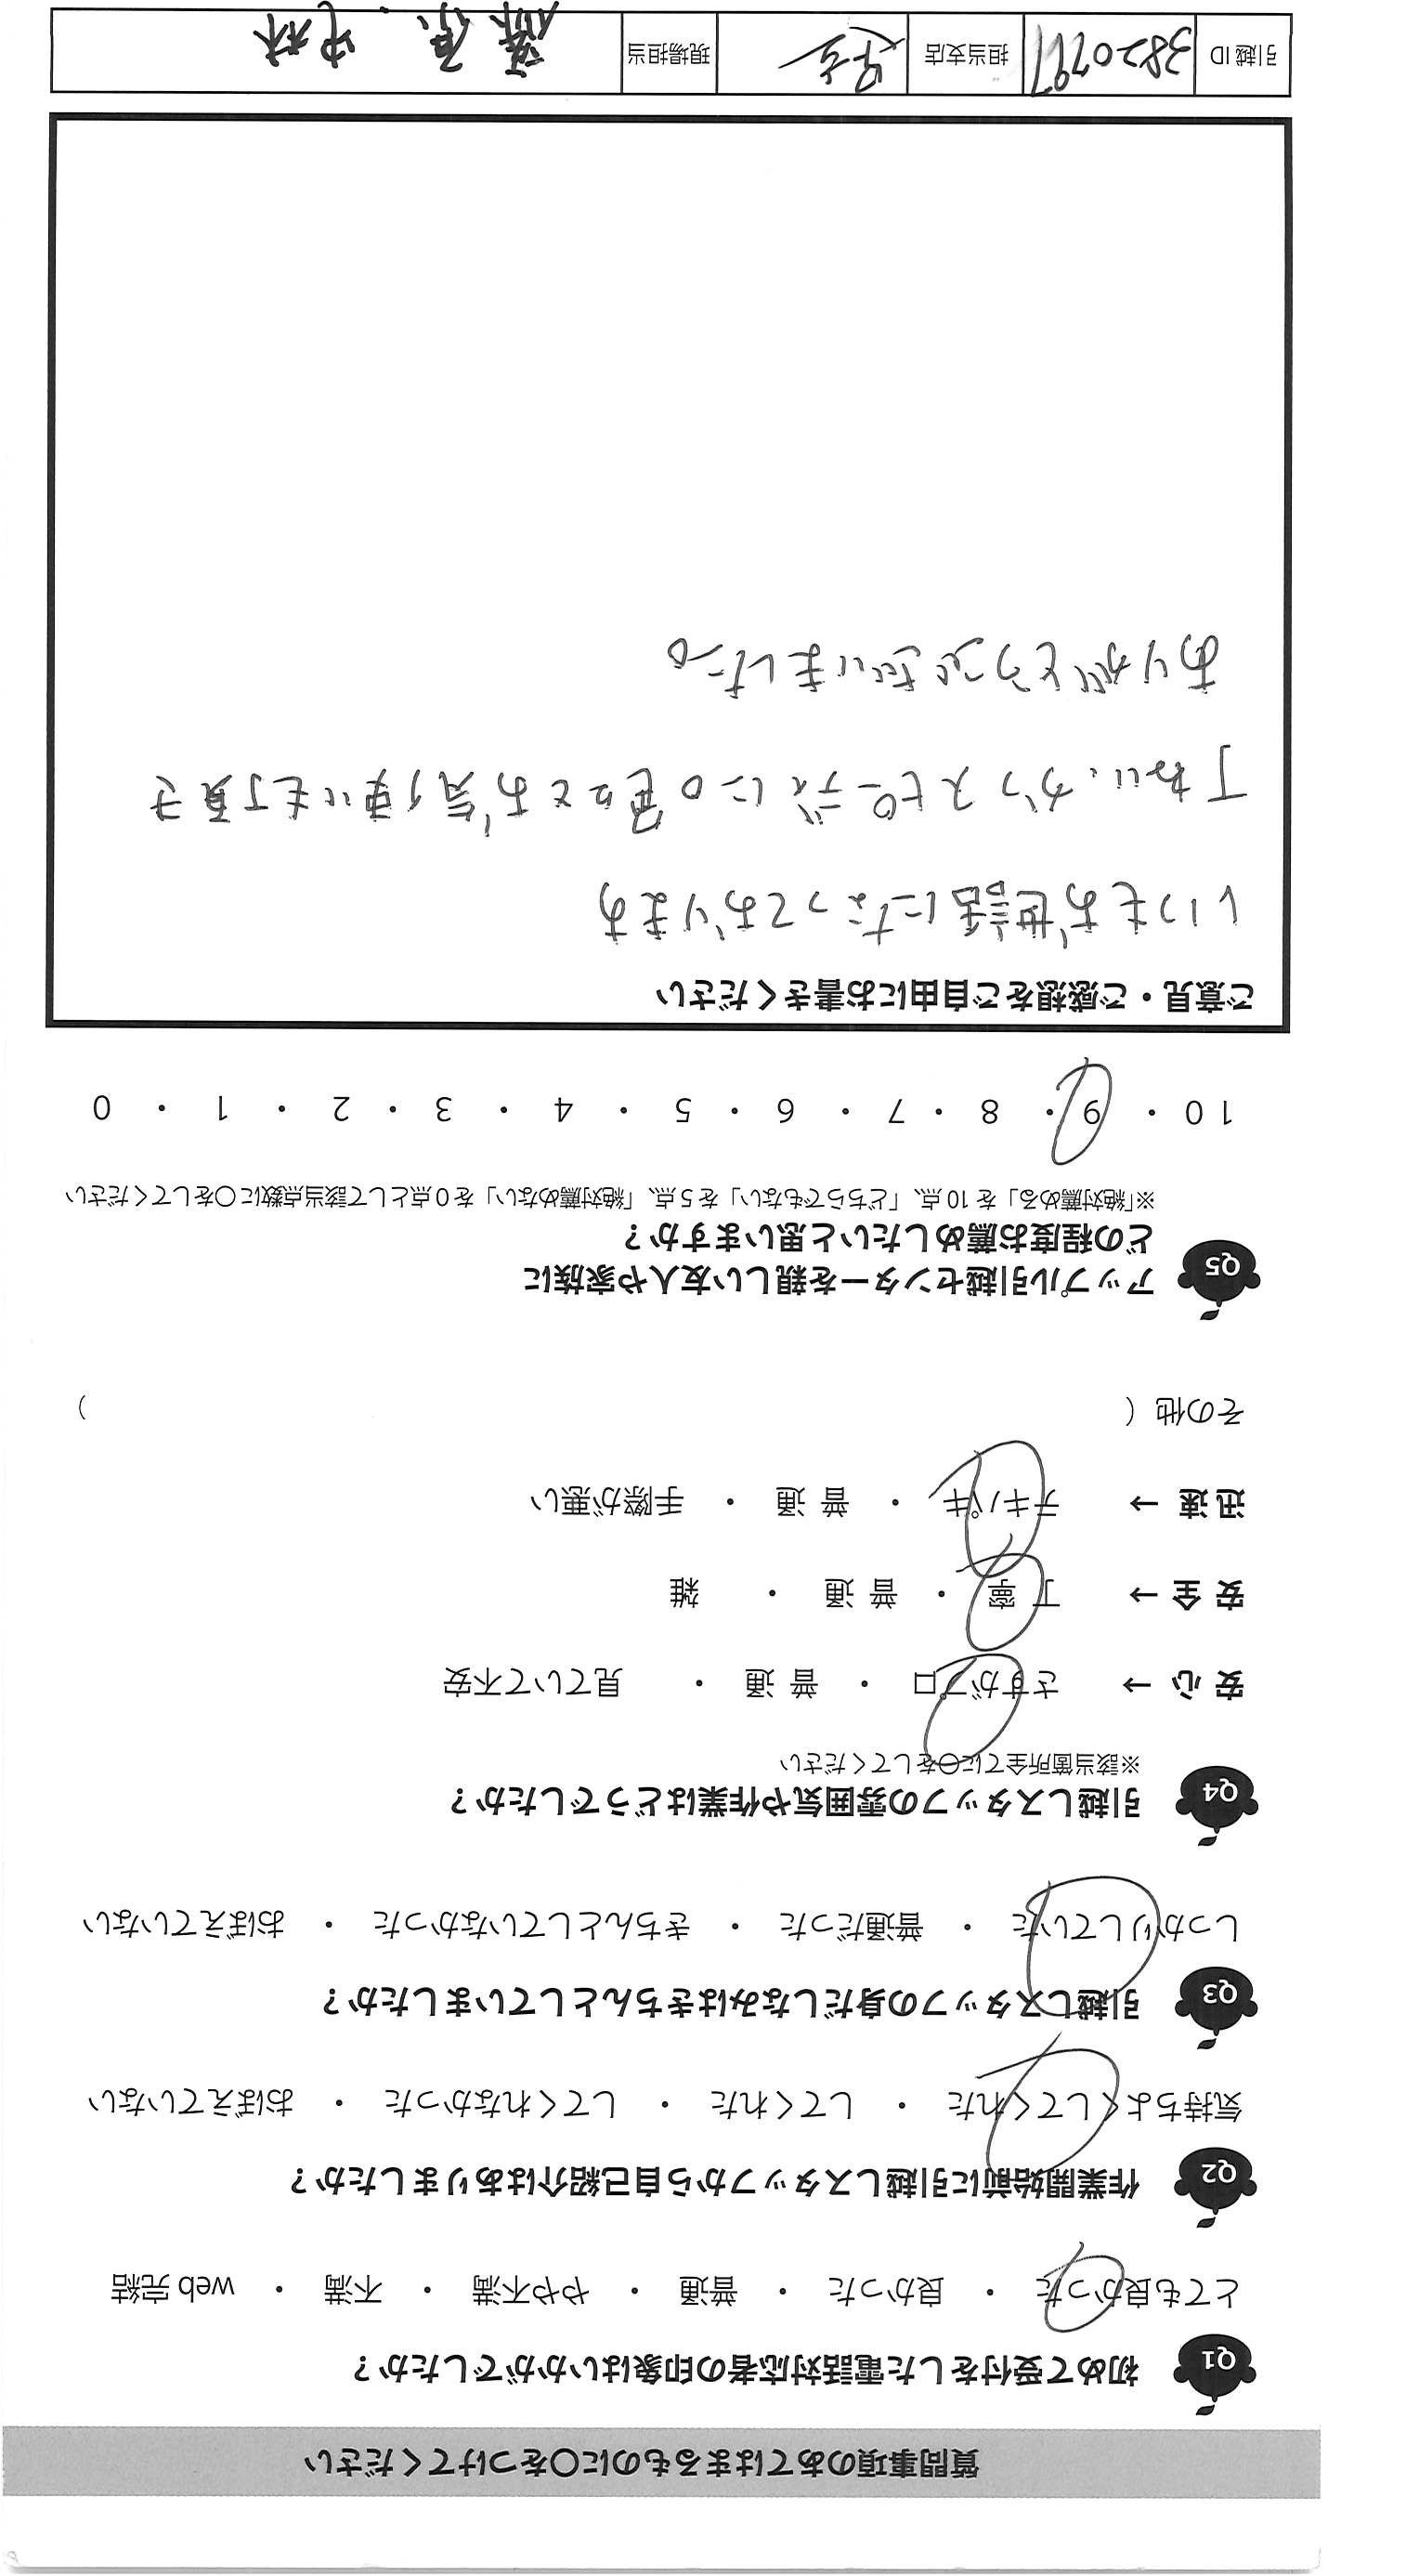 質問事項のあてはまるものに○をつけてください
Q1 初めて受付をした電話対応者の印象はいかがでしたか？
とても良かった ・ 良かった ・ 普通 ・ やや不満 ・ 不満 ・ web 完結
Q2 作業開始前に引越しスタッフから自己紹介はありましたか？
気持ちよくしてくれた ・ してくれた ・ してくれなかった ・ おぼえていない
Q3 引越しスタッフの身だしなみはきちんとしていましたか？
しっかりしていた ・ 普通だった ・ きちんとしていなかった ・ おぼえていない
Q4 引越しスタッフの雰囲気や作業はどうでしたか？
※該当箇所全てに○をしてください
安 心 → さすがプロ ・ 普 通 ・ 見ていて不安
安 全 → 丁 寧 ・ 普 通 ・ 雑
迅 速 → テキパキ ・ 普 通 ・ 手際が悪い
その他（ ）
Q5 アップル引越センターを親しい友人や家族に
どの程度お薦めしたいと思いますか？
※「絶対薦める」を 10 点、「どちらでもない」を 5 点、「絶対薦めない」を 0 点として該当点数に○をしてください
10 ・ 9 ・ 8 ・ 7 ・ 6 ・ 5 ・ 4 ・ 3 ・ 2 ・ 1 ・ 0
ご意見・ご感想をご自由にお書きください
いつもお世話になっております
丁ねい、かつスピーディに。色々とお気使いも頂き
ありがとうございました。
引越 ID 3820797 担当支店 現場担当 藤原、中林